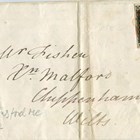 Mr Feshen
Nr Malford
Chippenham
Wilts